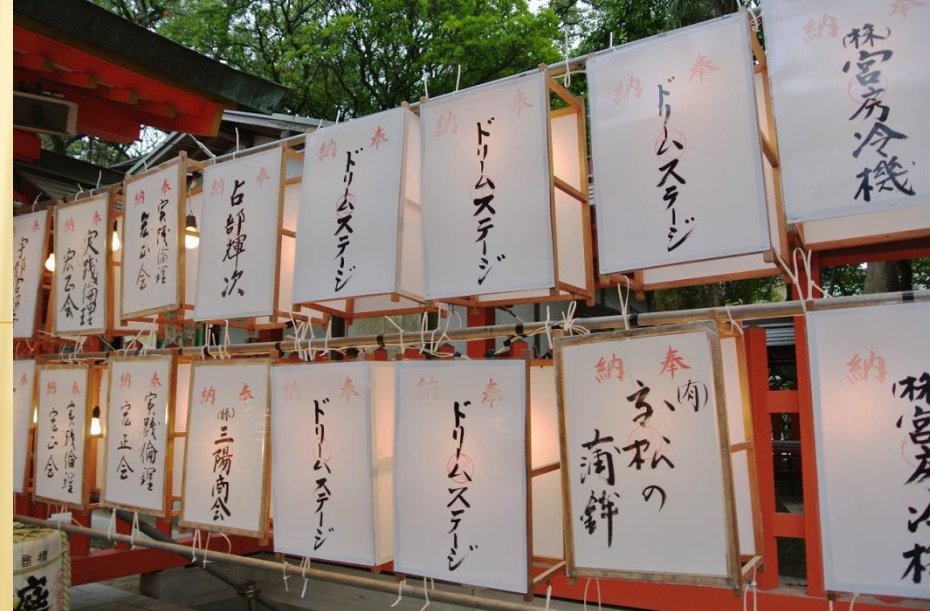 奉納
実践倫理
宏正会
奉納
実践倫理
宏正会
奉納
占部輝次
奉納
ドリームステージ
奉納
ドリームステージ
奉納
ドリームステージ
奉納
(株)宮房冷機
奉納
実践倫理
宏正会
奉納
実践倫理
宏正会
奉納
(株)三陽商会
奉納
ドリームステージ
奉納
ドリームステージ
奉納
(有)高松の
蒲鉾
納
(株)宮房冷機